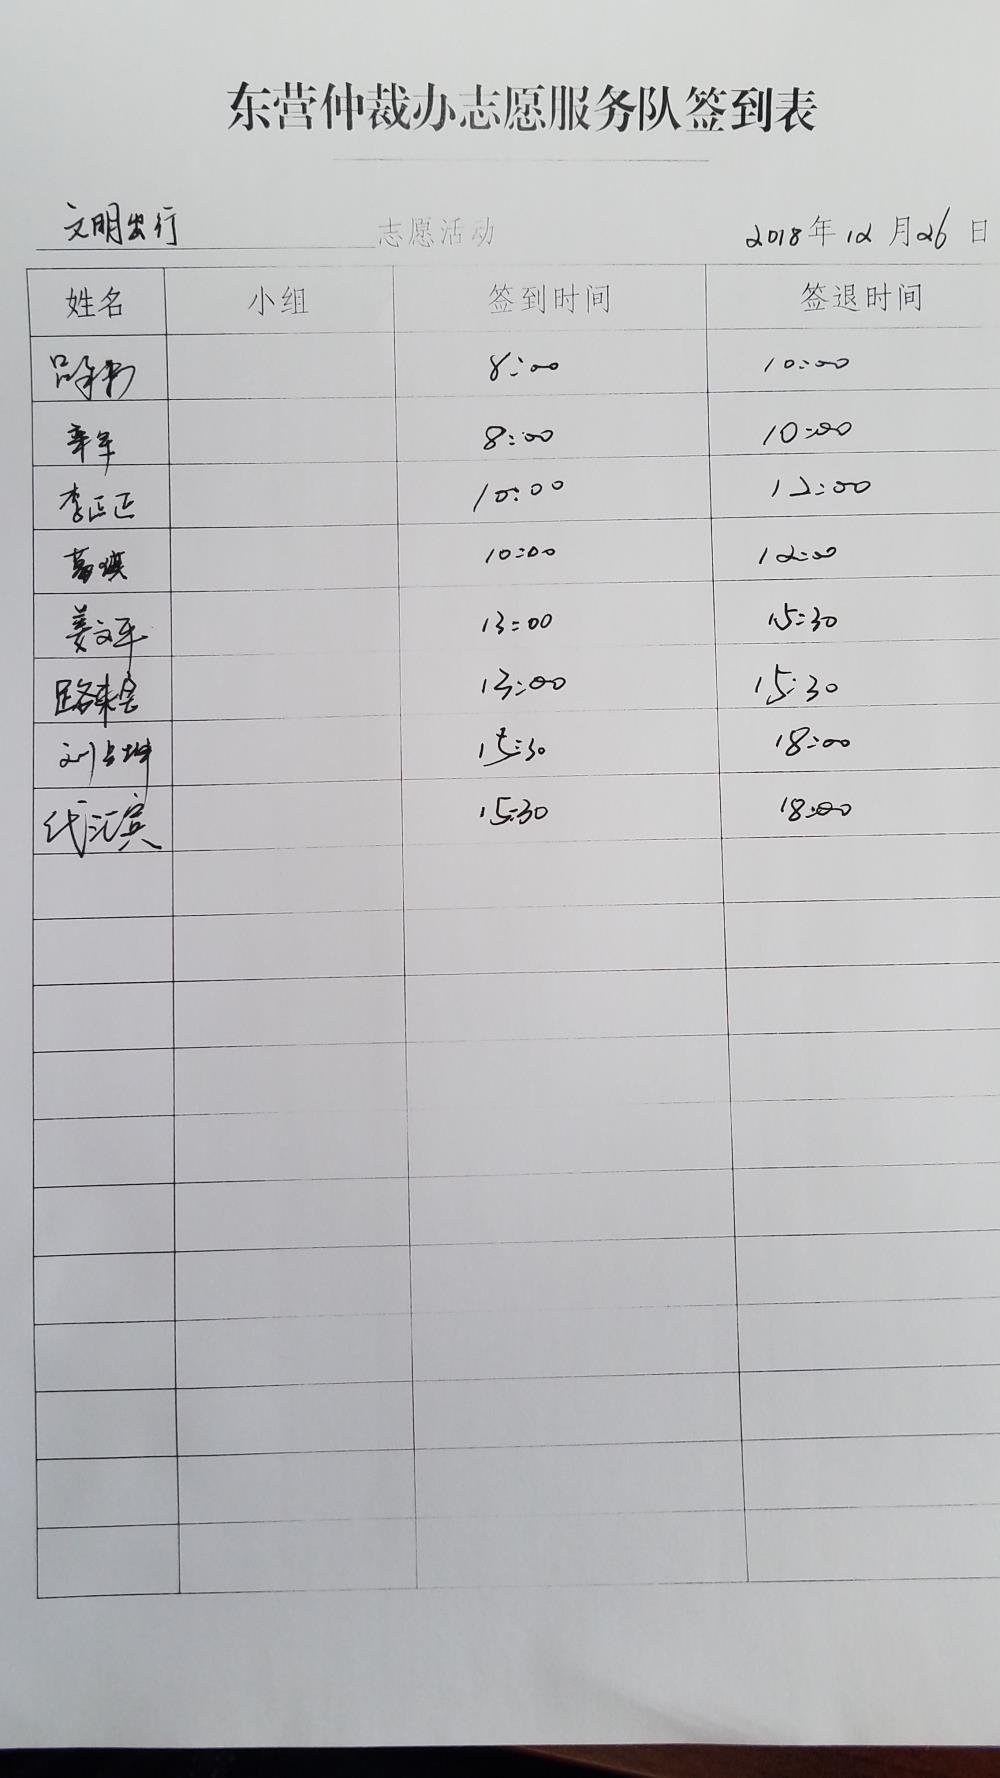 东营仲裁办志愿服务队签到表
文明出行 志愿活动 2018年12月26日
姓名 小组 签到时间 签退时间
8:00 10:00
8:00 10:00
李正正 10:00 12:00
10:00 12:00
姜文平 13:00 15:30
13:00 15:30
刘占坤 15:30 18:00
代汇宾 15:30 18:00